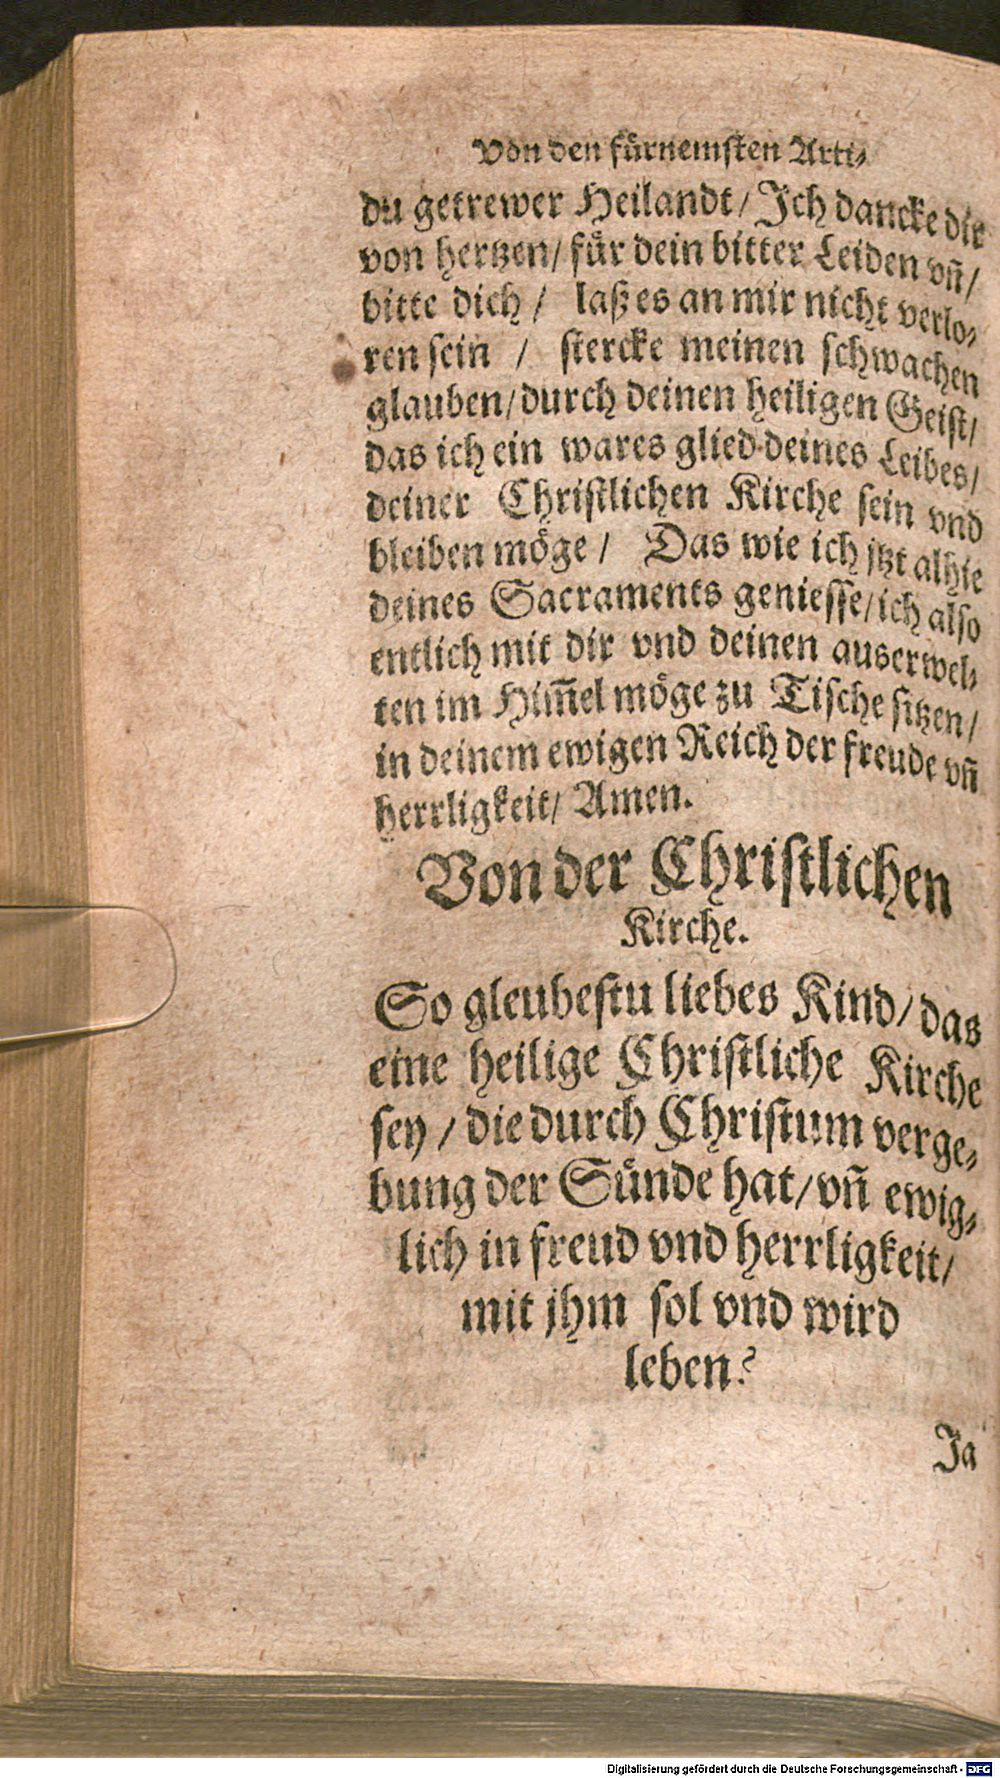 Von den fürnemsten Arti⸗
du getrewer Heilandt/ Ich dancke dir
von hertzen/ für dein bitter Leiden vñ/
bitte dich / laß es an mir nicht verlo⸗
ren sein / stercke meinen schwachen
glauben/ durch deinen heiligen Geist/
das ich ein wares glied deines Leibes/
deiner Christlichen Kirche sein vnd
bleiben möge / Das wie ich jtzt alhie
deines Sacraments geniesse/ ich also
entlich mit dir vnd deinen auserwel⸗
ten im Him̅el möge zu Tische sitzen/
in deinem ewigen Reich der freude vñ
herrligkeit/ Amen.
Von der Christlichen
Kirche.
So gleubestu liebes Kind/ das
eine heilige Christliche Kirche
sey / die durch Christum verge⸗
bung der Sünde hat/ vñ ewig⸗
lich in freud vnd herrligkeit/
mit jhm sol vnd wird
leben?
Ja
Digitalisierung gefördert durch die Deutsche Forschungsgemeinschaft - DFG